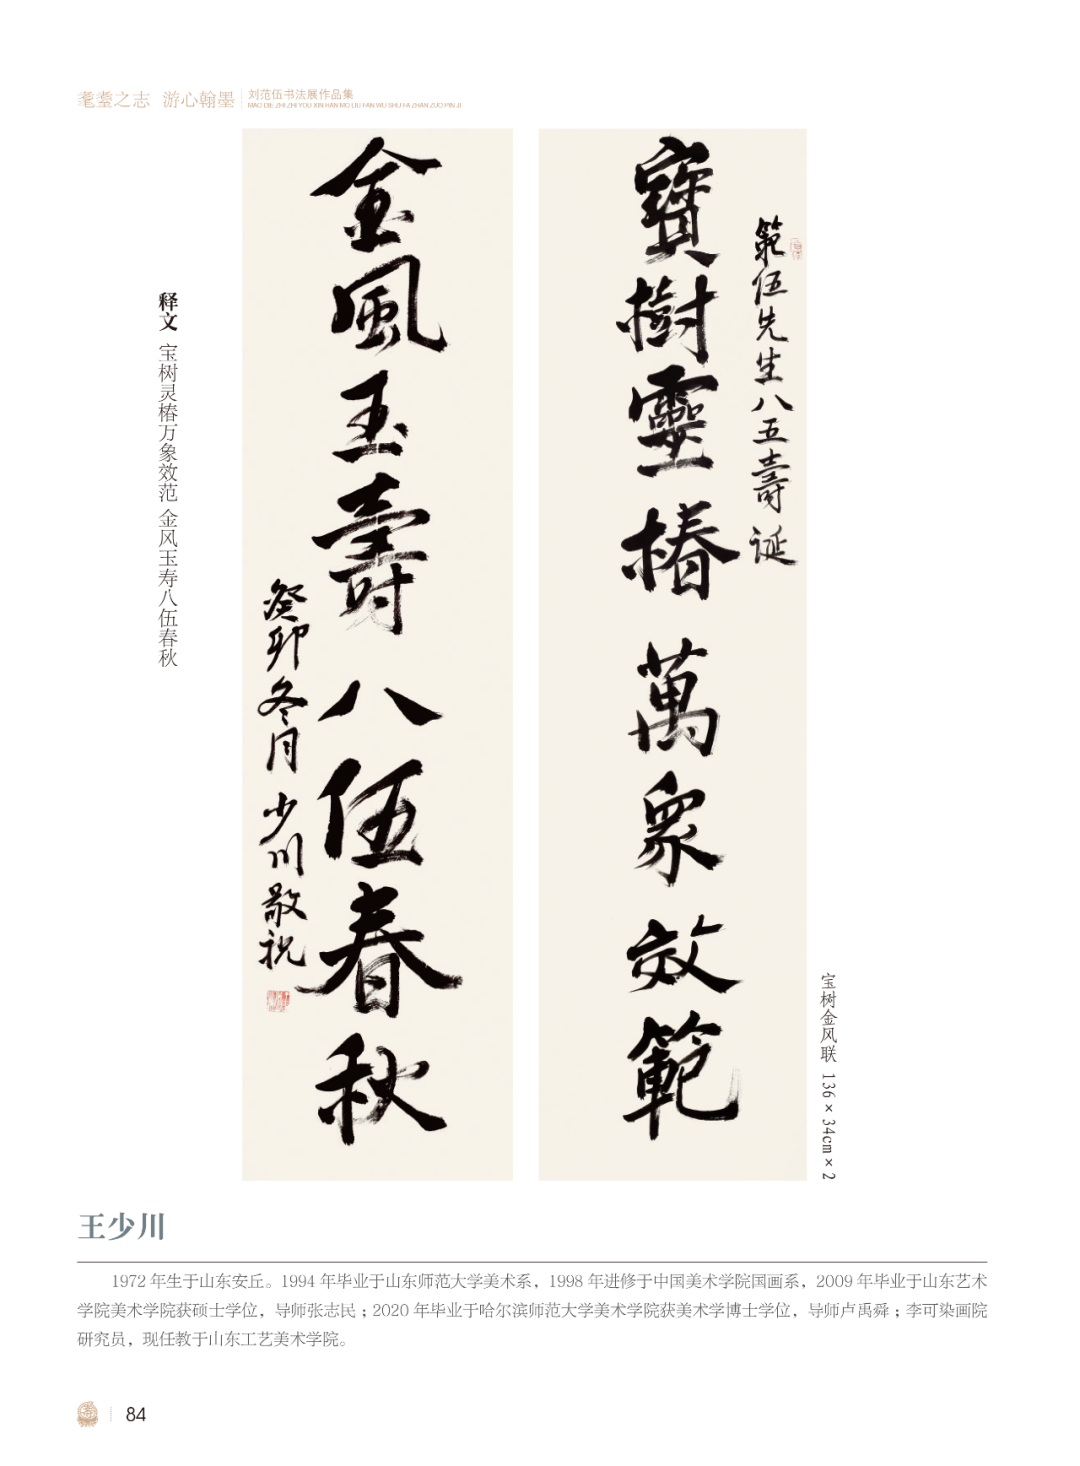 耄耋之志 游心翰墨
刘范伍书法展作品集
MAO DIE ZHI ZHI YOU XIN HAN MO LIU FAN WU SHU FA ZHAN ZUO PIN JI
範伍先生八五壽诞
寶樹靈椿萬象效範
金風玉壽八伍春秋
癸卯冬月少川敬祝
释文 宝树灵椿万象效范 金风玉寿八伍春秋
宝树金风联 136×34cm×2
王少川
1972 年生于山东安丘。1994 年毕业于山东师范大学美术系，1998 年进修于中国美术学院国画系，2009 年毕业于山东艺术
学院美术学院获硕士学位，导师张志民；2020 年毕业于哈尔滨师范大学美术学院获美术学博士学位，导师卢禹舜；李可染画院
研究员，现任教于山东工艺美术学院。
84